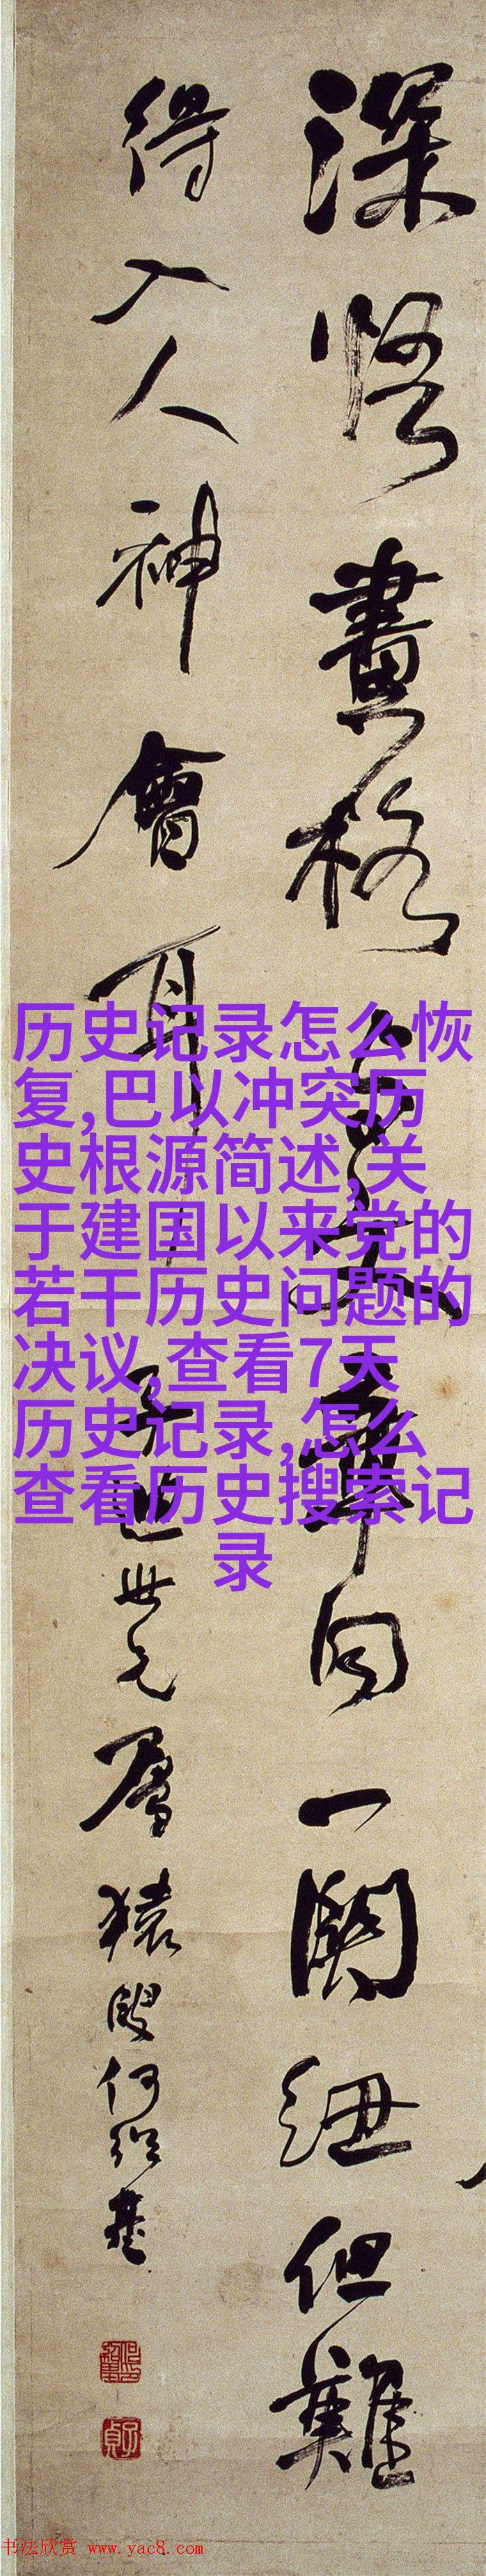 深悟畫格與文章同一關紐但難
得入人神會耳
世兄屬猿叟何紹基
历史记录怎么恢
复,巴以冲突历
史根源简述,关
于建国以来党的
若干历史问题的
决议,查看7天
历史记录,怎么
查看历史搜索记
录
书法欣赏 www.yac8.com